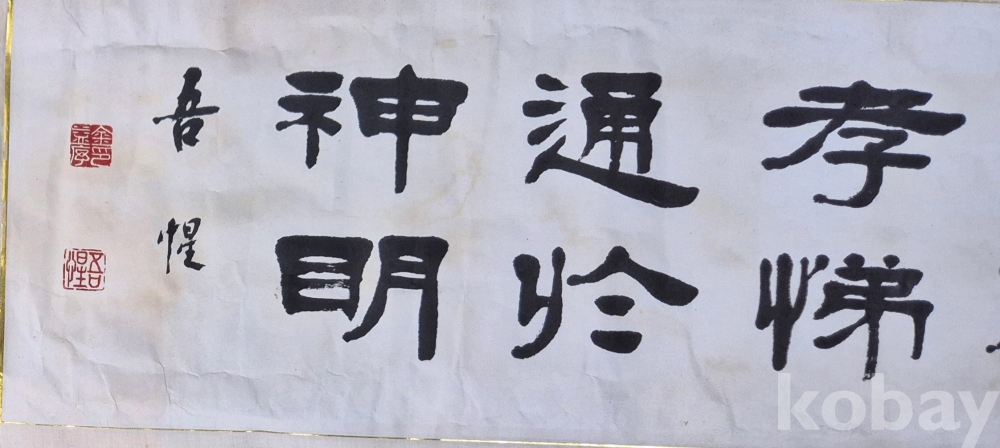 孝悌
通於
神明
吾惺
吾惺
kobay